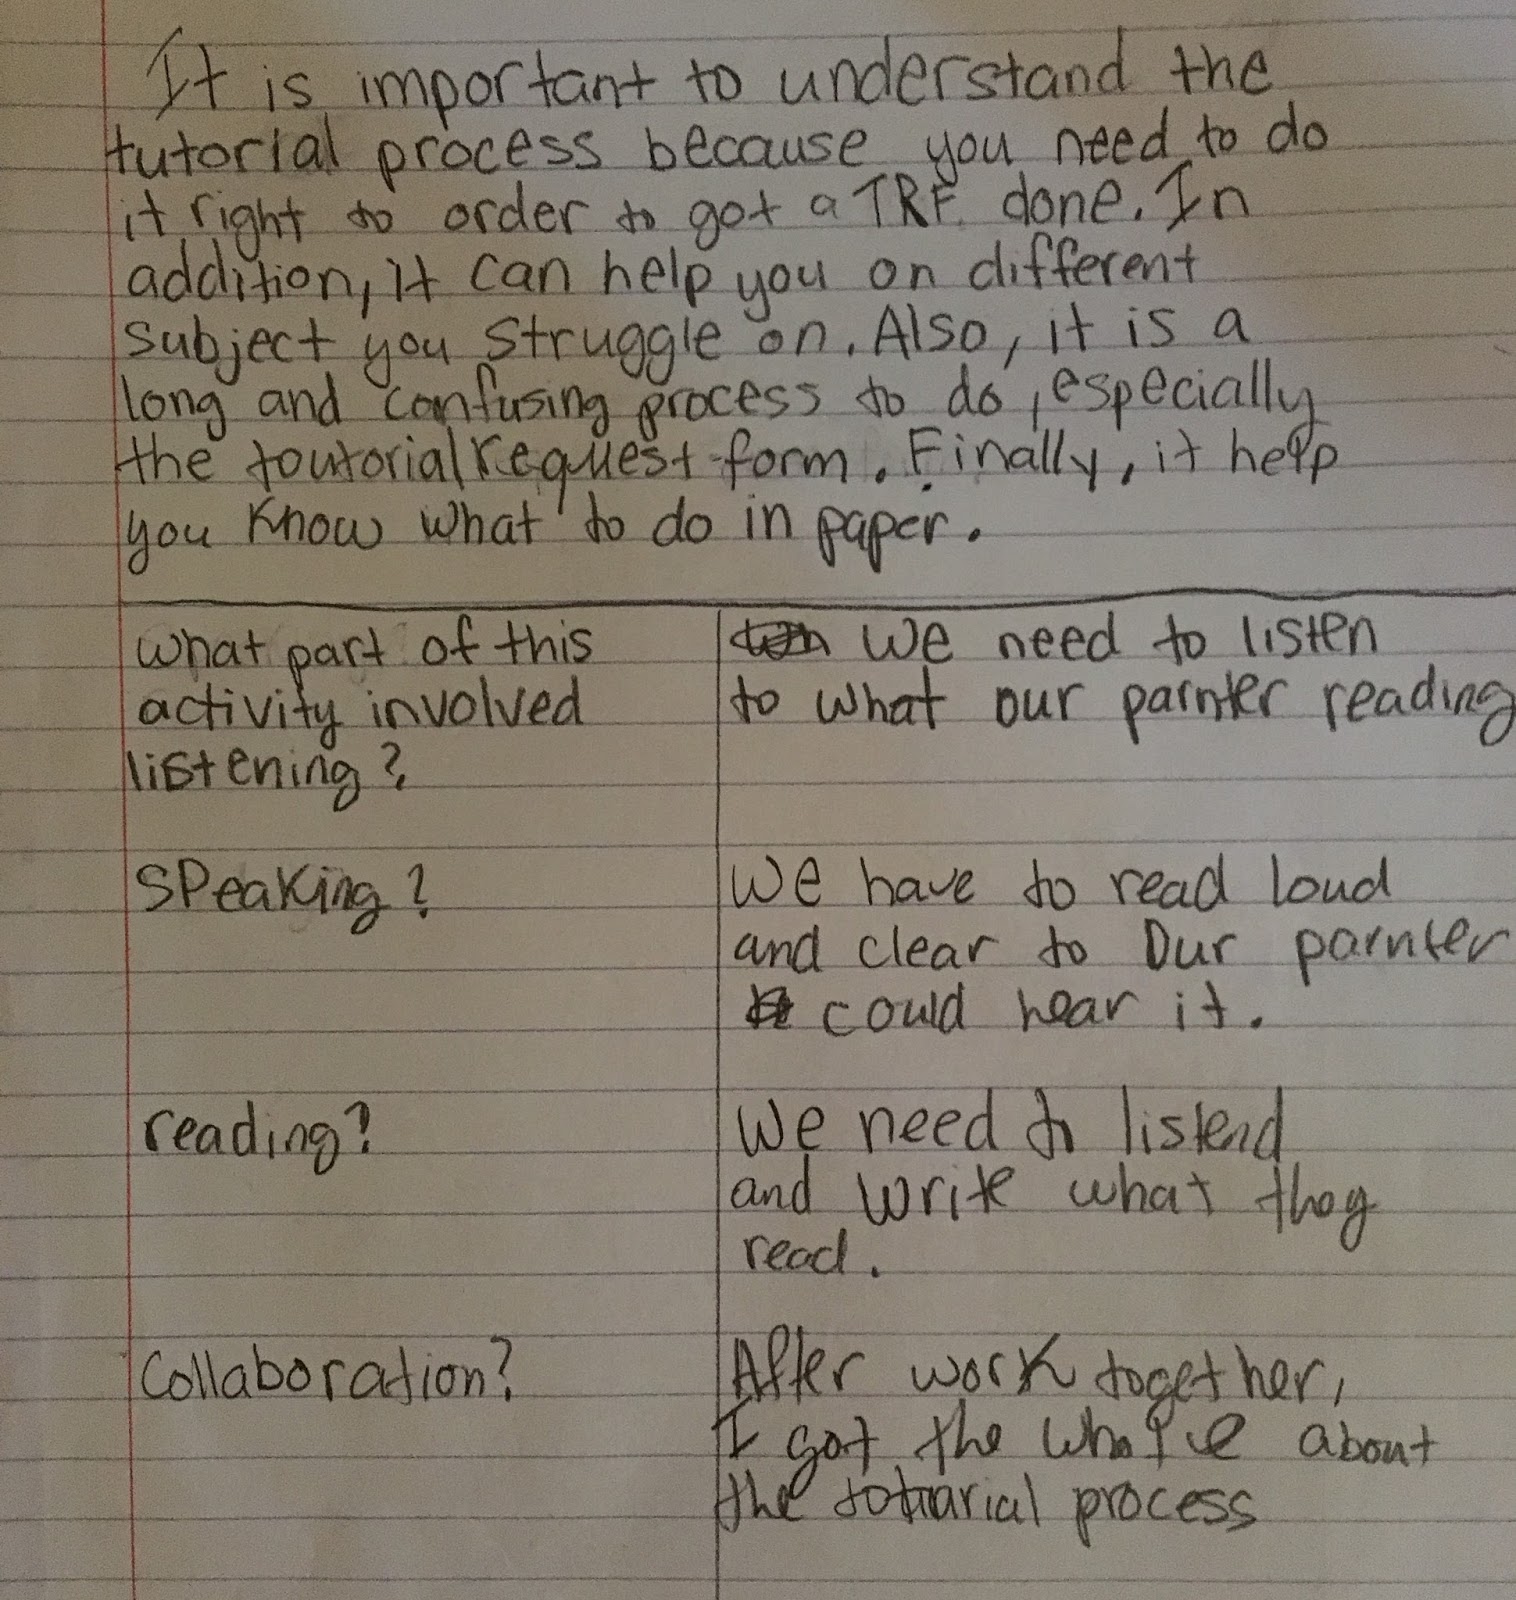 It is important to understand the
tutorial process because you need to do
it right to order to got a TRF done. In
addition, it can help you on different
subject you struggle on. Also, it is a
long and confusing process to do, especially
the toutorial request form. Finally, it help
you know what to do in paper.
what part of this
activity involved
listening?
We need to listen
to what our parnter reading
Speaking?
We have to read loud
and clear to our parnter
could hear it.
reading?
We need to listend
and write what they
read.
Collaboration?
After work together,
I got the about
the process